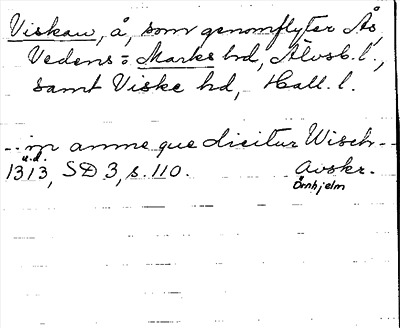 Viskan, å, som genomflyter Ås,
Vedens o Marks hd, Älvsb. l.,
samt Viske hd, Hall. l.
-- in amne que dicitur Wisch --
u.d.
1313, SD 3, s. 110. Avskr.
Örnhjelm